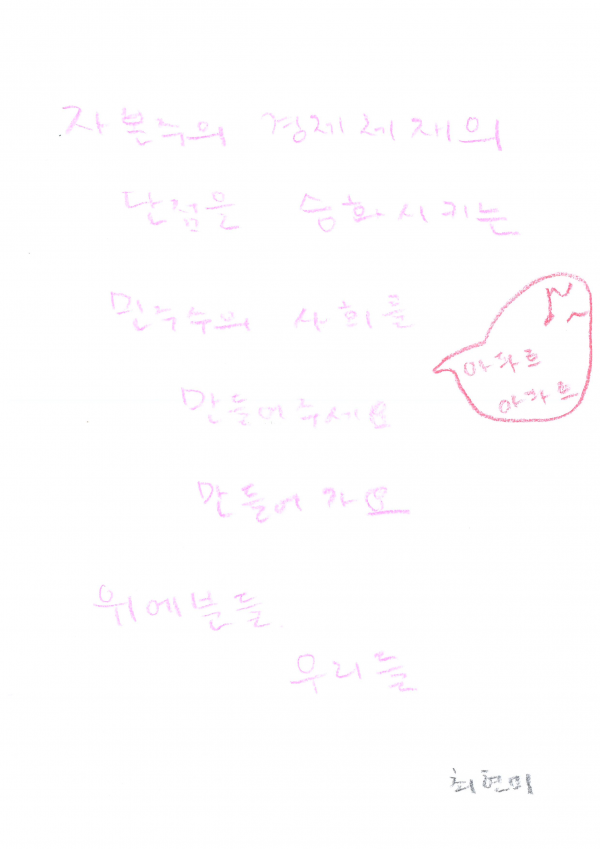 자본주의 경제체재의
단점을 승화시키는
민주주의 사회를
만들어주세요
만들어가요
위에분들
우리들
아파트
아파트
최현미